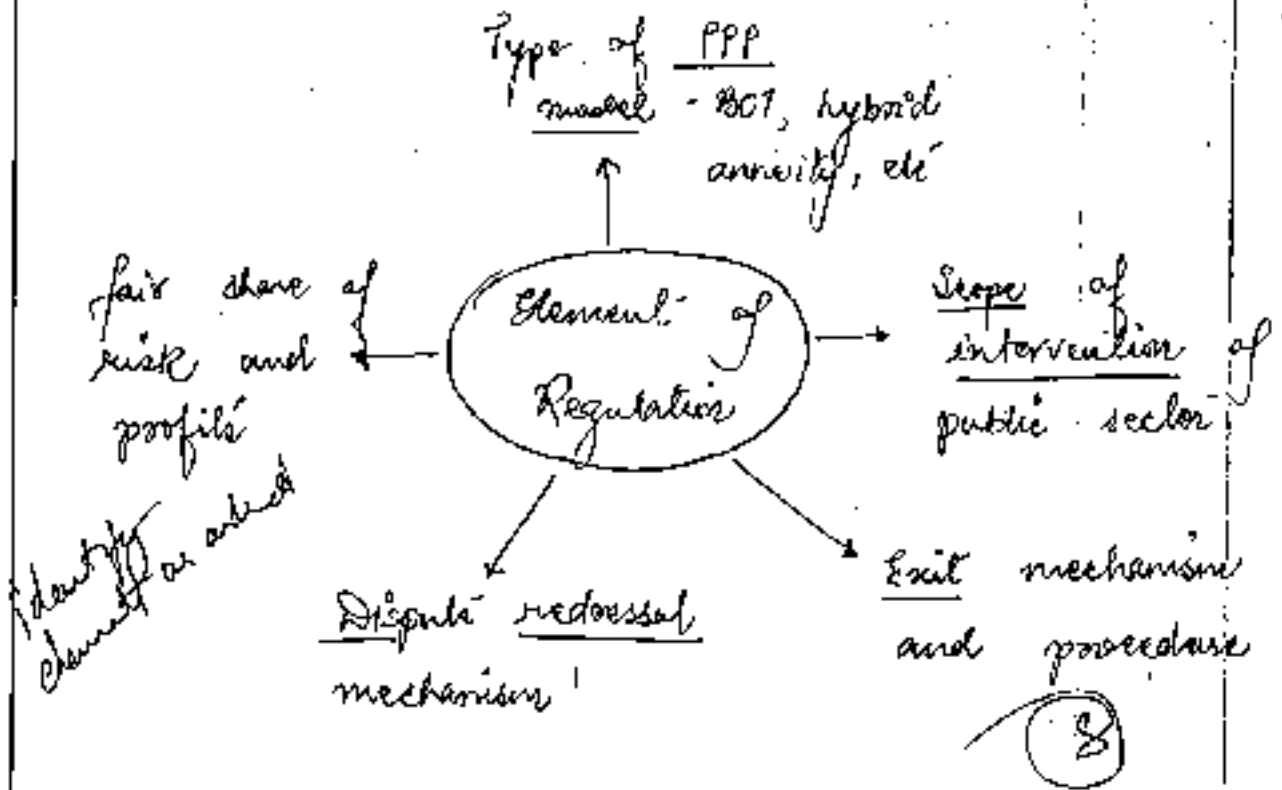 Type of PPP
model - BOT, hybrid
annuity, etc
fair share of
risk and
profits
Element of
Regulation
Scope of
intervention of
public sector
Identify
as asked
Dispute redressal
mechanism
Exit mechanism
and procedure
8